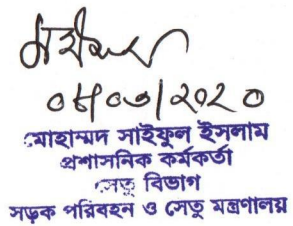 ০৮/০৩/২০২০
মোহাম্মদ সাইফুল ইসলাম
প্রশাসনিক কর্মকর্তা
সেতু বিভাগ
সড়ক পরিবহন ও সেতু মন্ত্রণালয়